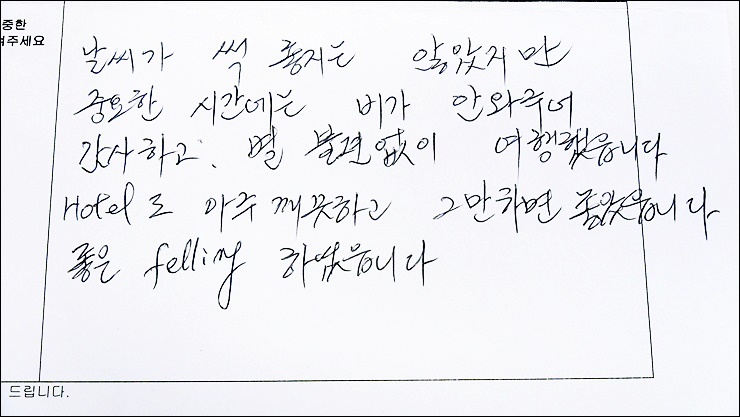 중한
겨주세요
날씨가 썩 좋지는 않았지만
중요한 시간에는 비가 안와주어
감사하고. 별 불편없이 여행했읍니다
Hotel도 아주 깨끗하고 그만하면 좋았읍니다
좋은 felling 하였읍니다
드립니다.